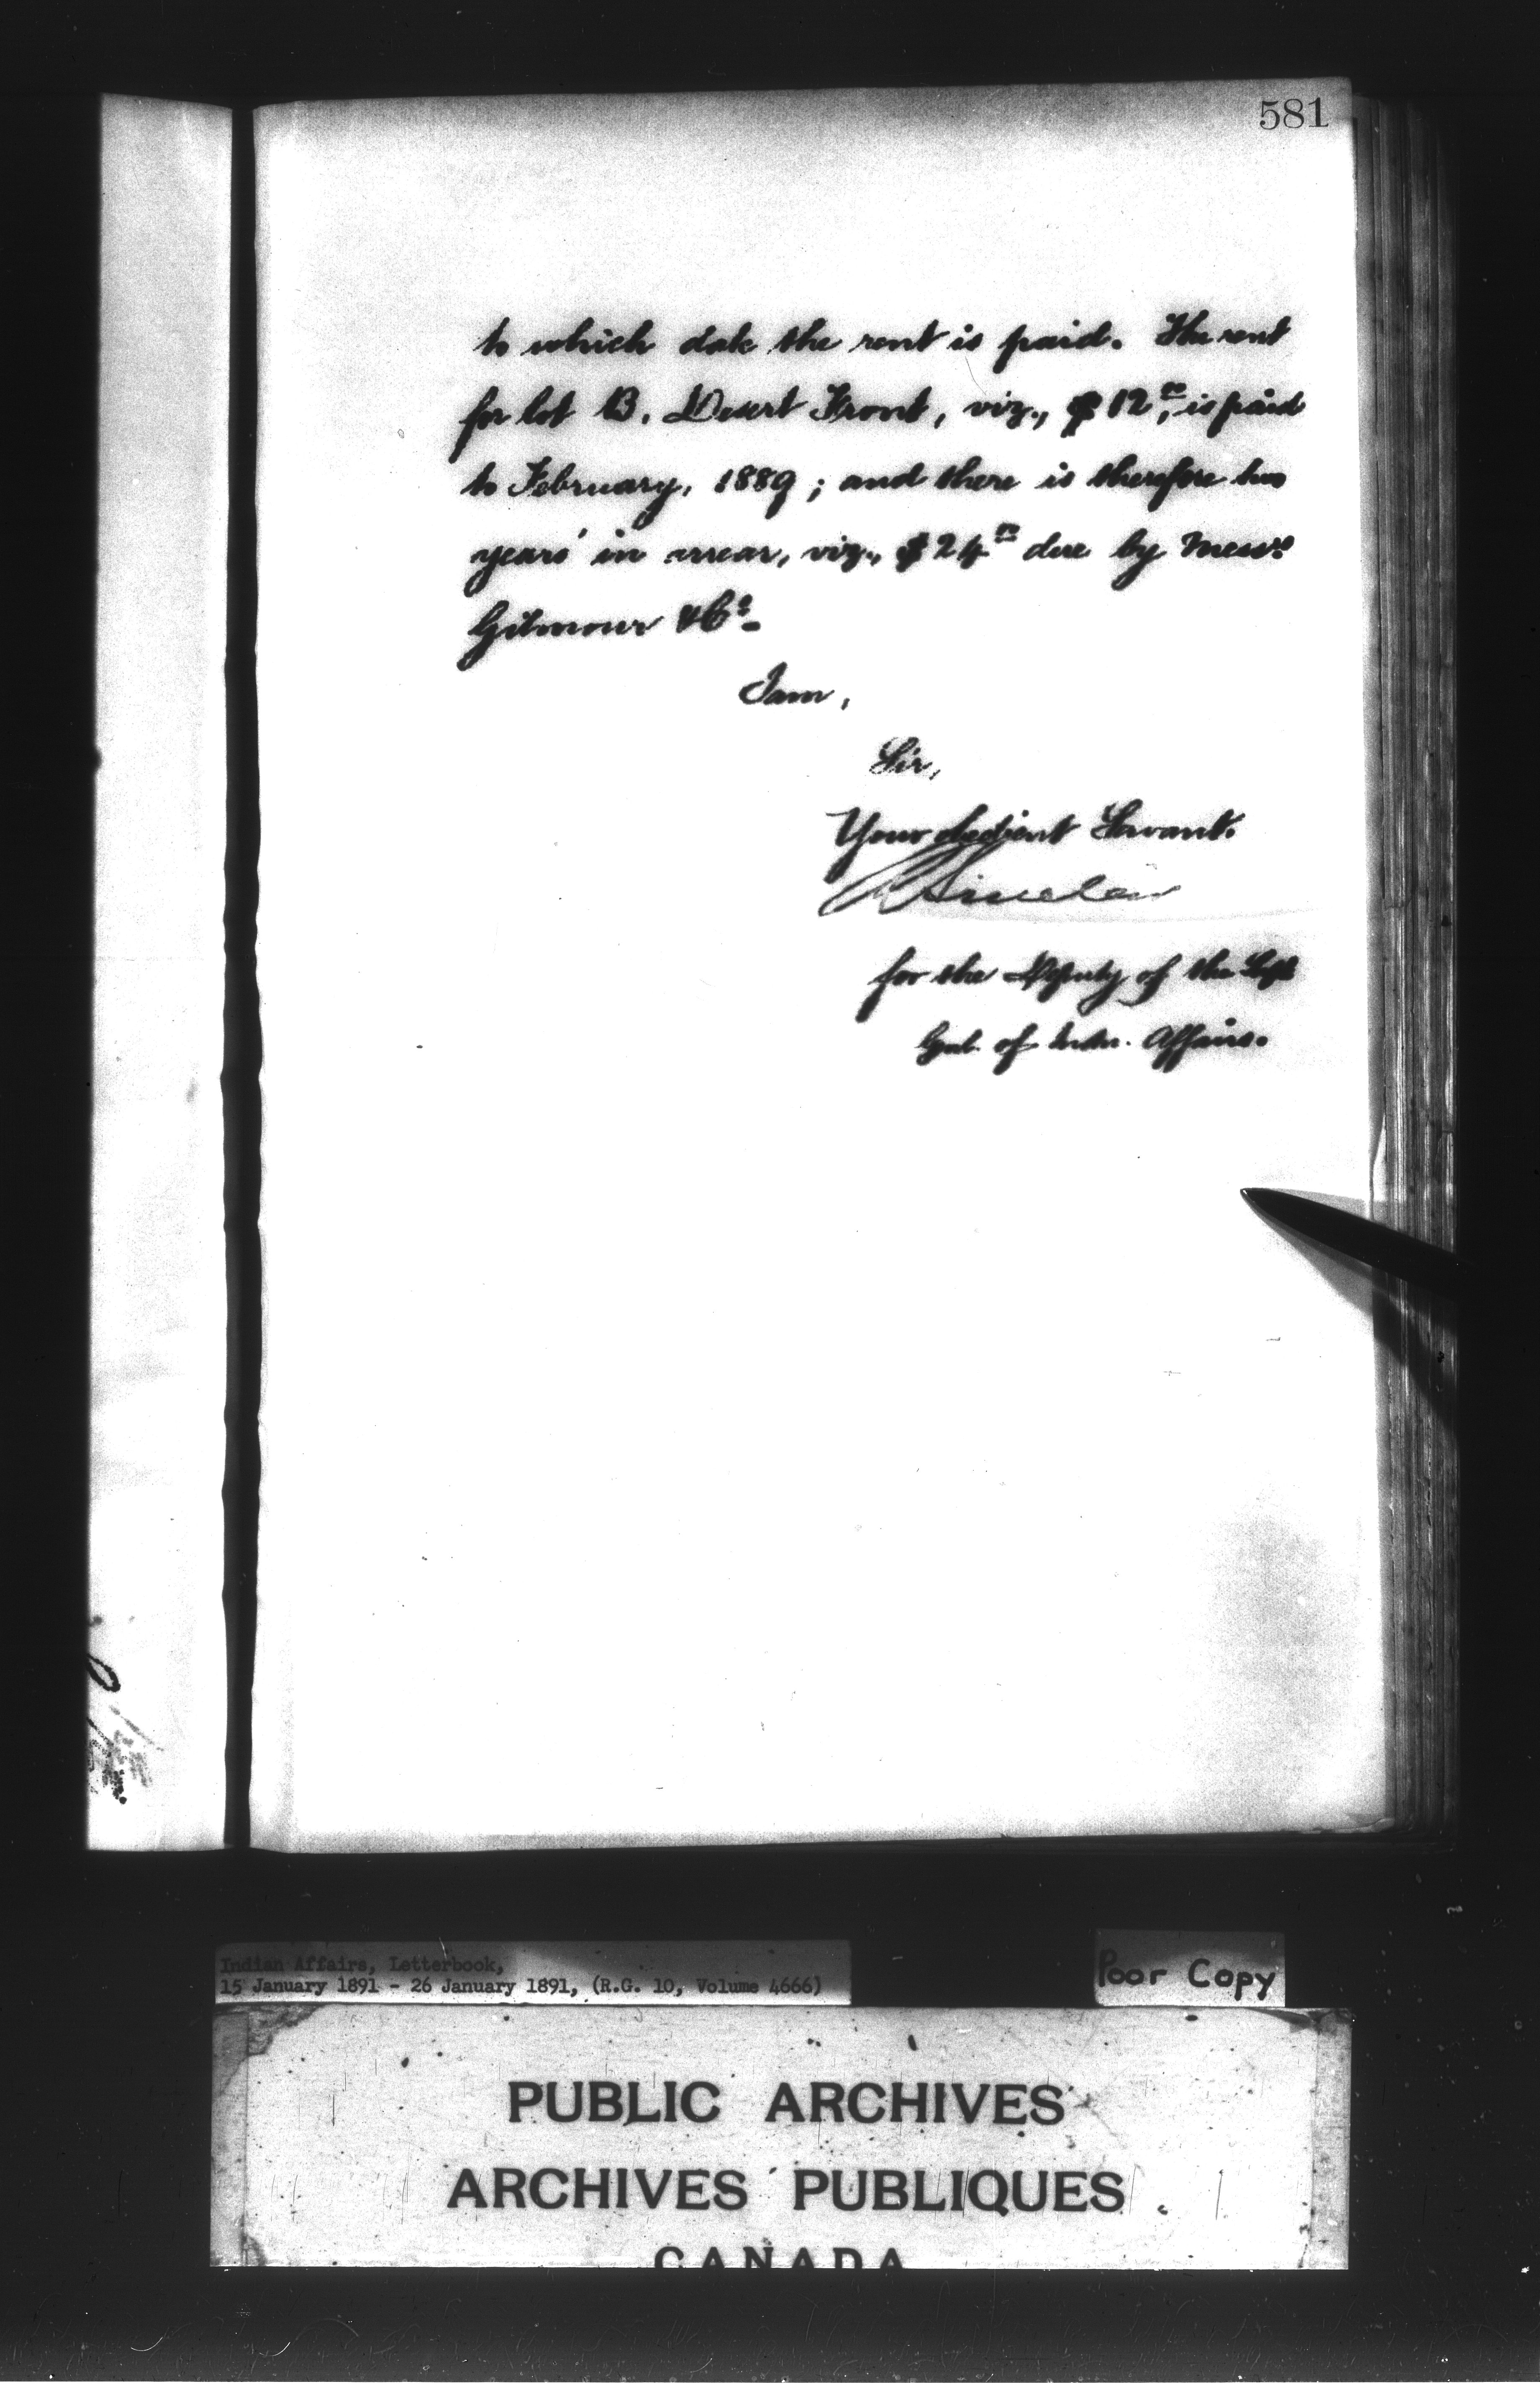 581
to which date the rent is paid. The rent
for lot B, Desert Front, viz., $12.00, is paid
to February, 1889; and there is therefore two
years' in arrear, viz., $24.00 due by Messrs
Gilmour & Co.
I am,
Sir,
Your obedient Servant.
Sinclair
for the Deputy of the Supt
Genl. of Indn. Affairs.
Indian Affairs, Letterbook,
15 January 1891 - 26 January 1891, (R.G. 10, Volume 4666)
Poor Copy
PUBLIC ARCHIVES
ARCHIVES PUBLIQUES
CANADA